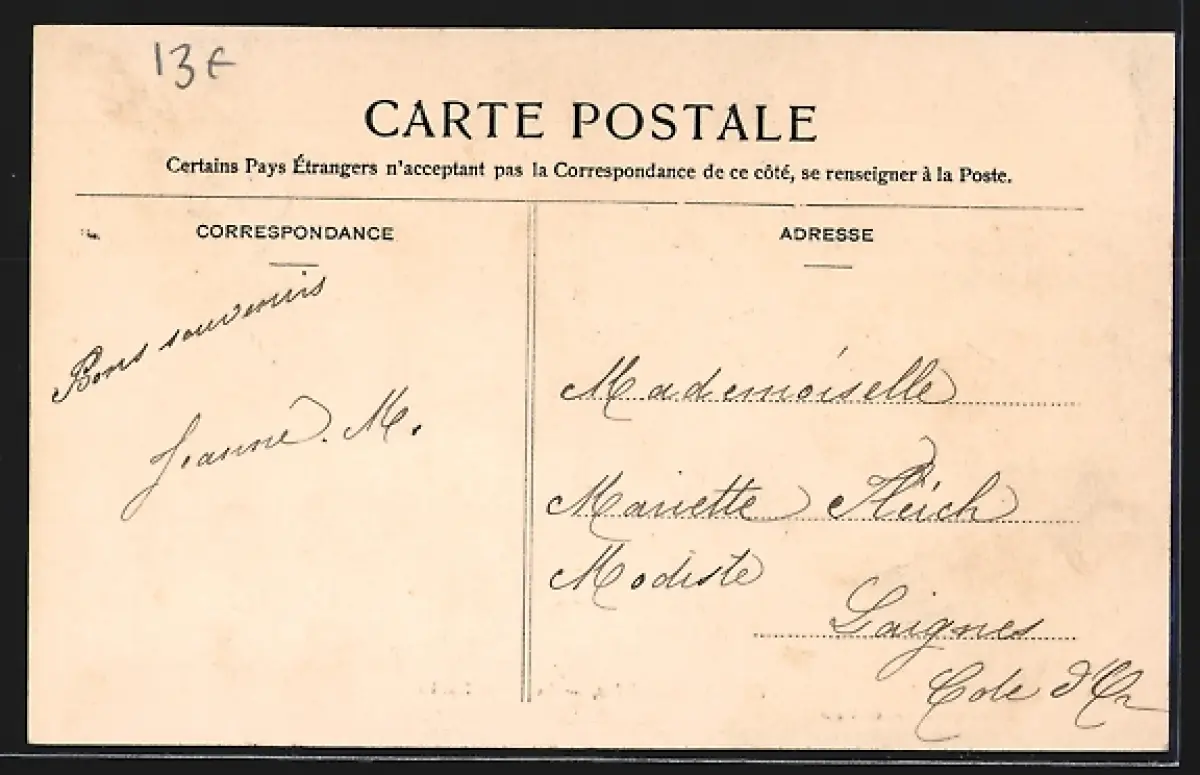 13€
CARTE POSTALE
Certains Pays Étrangers n'acceptant pas la Correspondance de ce côté, se renseigner à la Poste.
CORRESPONDANCE
Bons souvenirs
Jeanne. M.
ADRESSE
Mademoiselle
Mariette
Modiste
Laignes
Cote d'Or